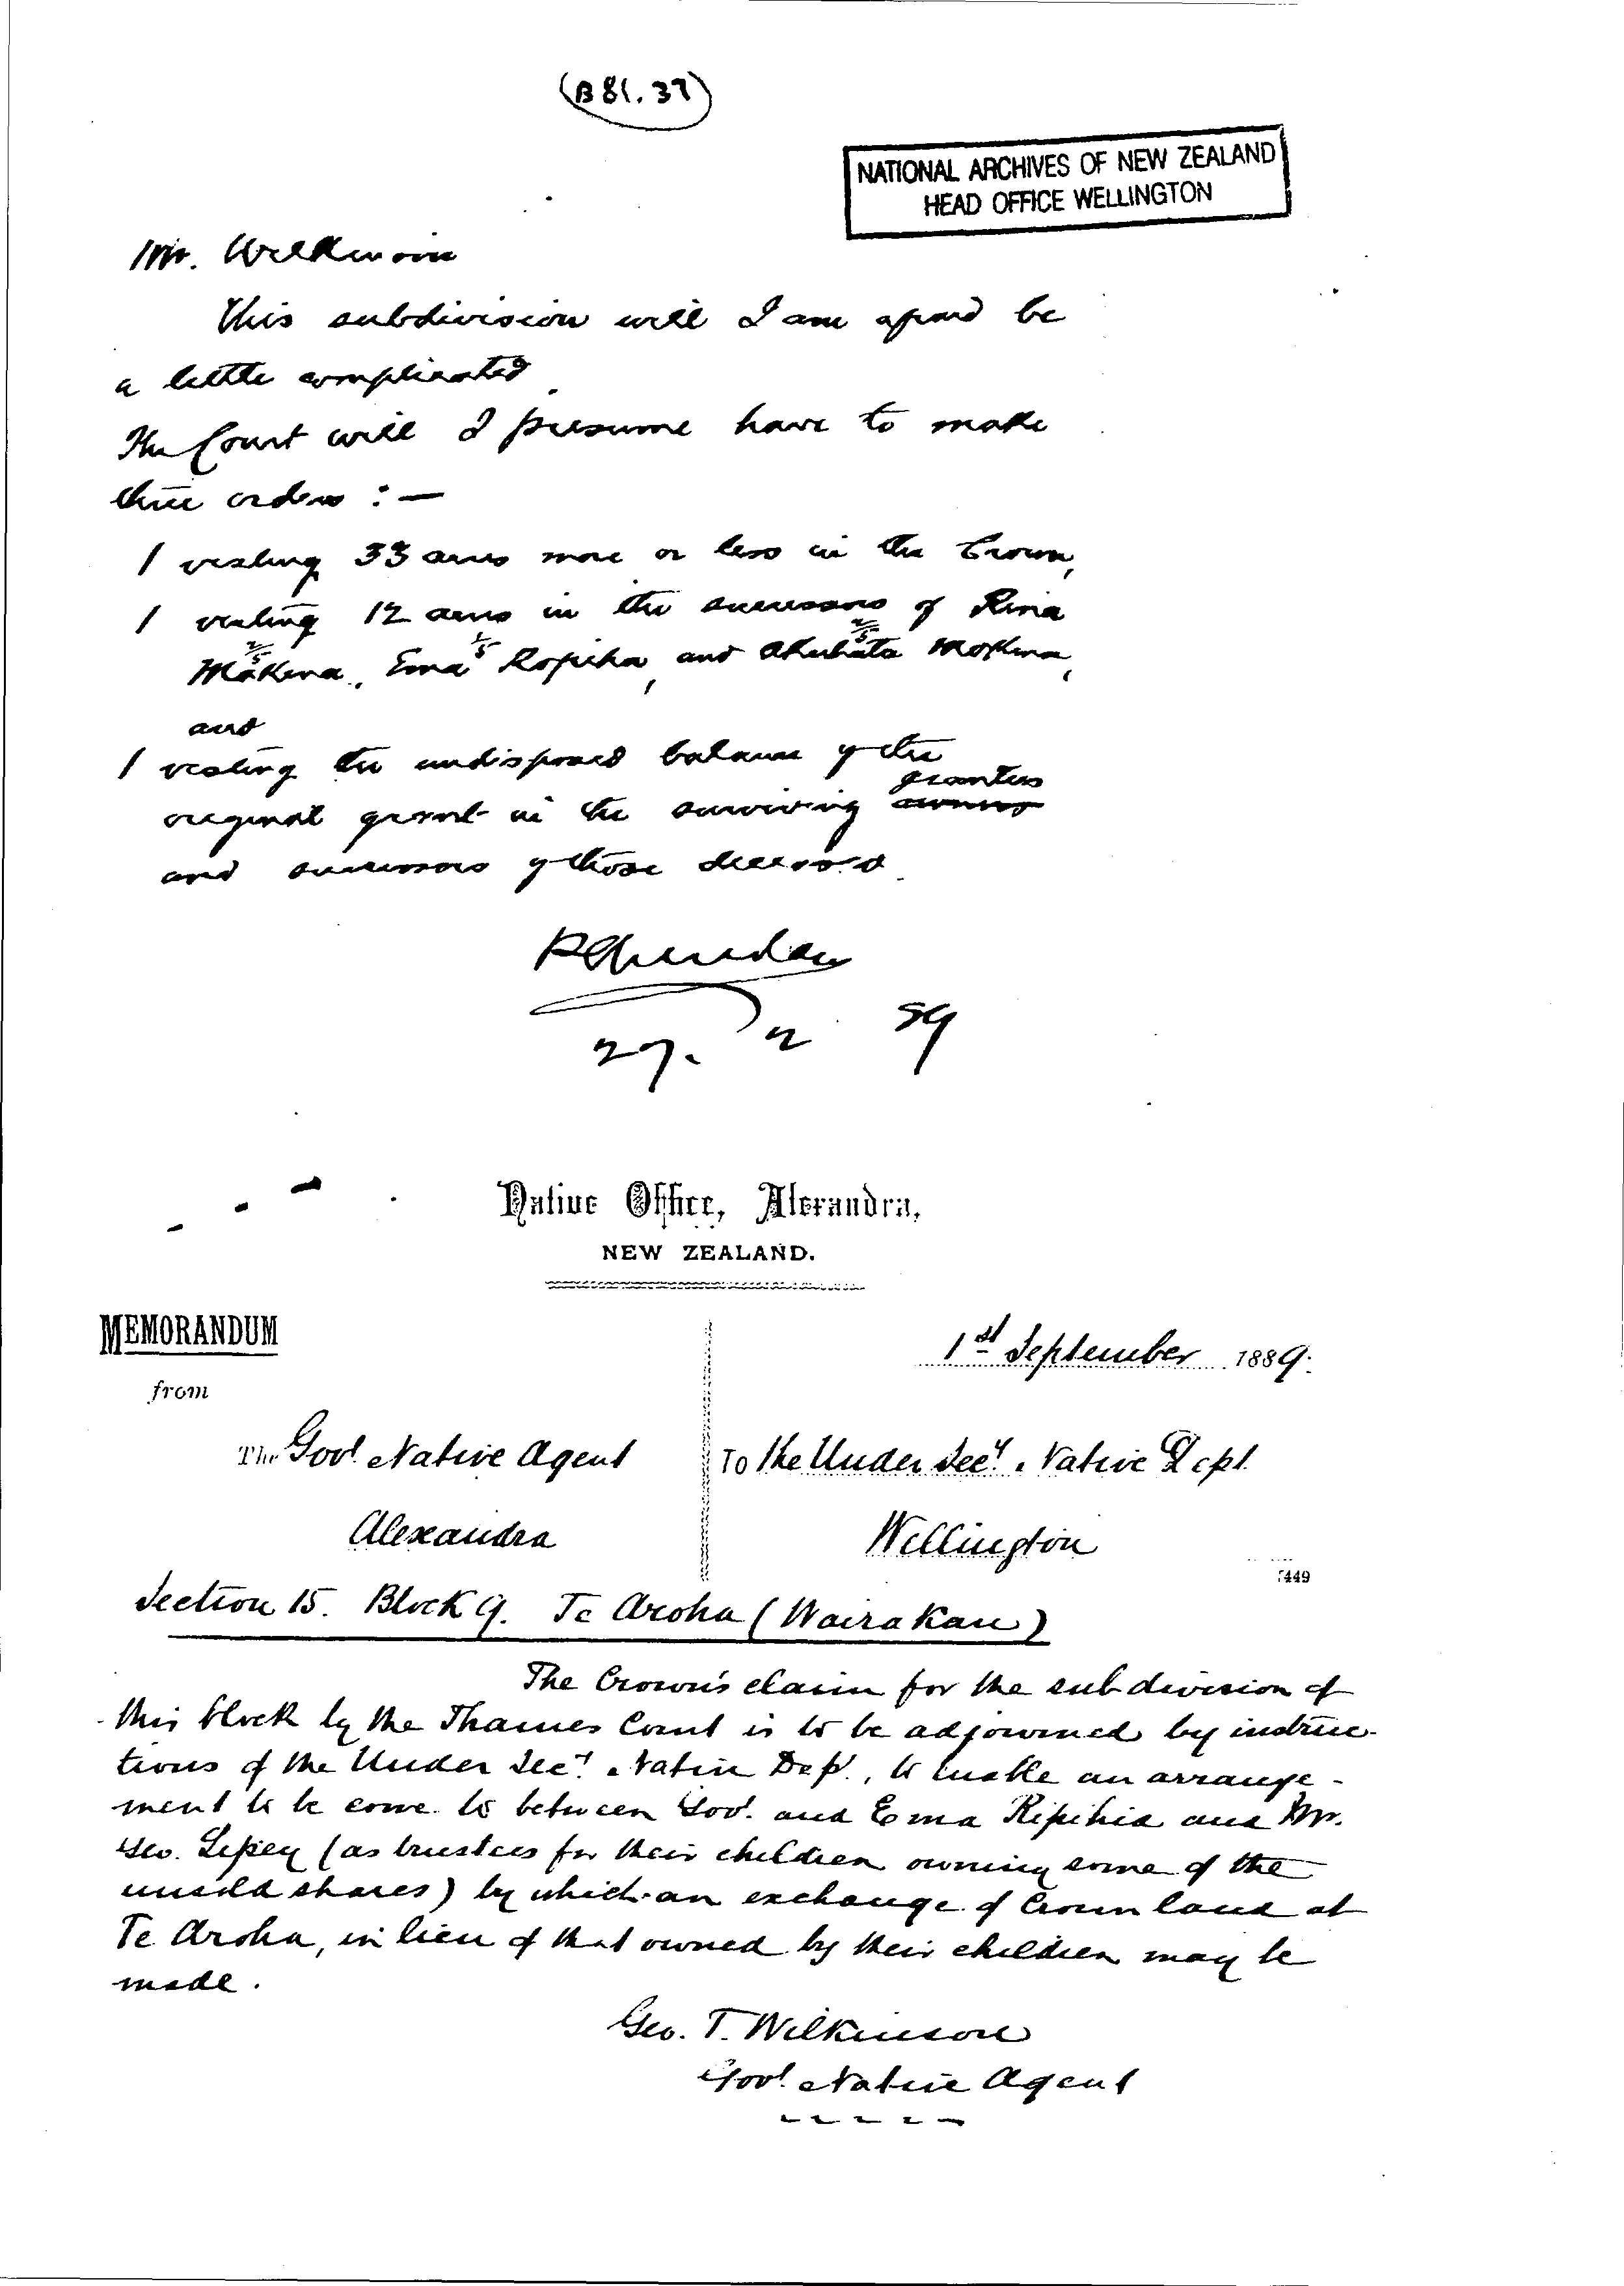 (B 81. 37)
NATIONAL ARCHIVES OF NEW ZEALAND
HEAD OFFICE WELLINGTON
Mr. Wilkinson
This subdivision will I am afraid be
a little complicated
The Court will I presume have to make
three orders : —
1 vesting 33 acres more or less in the Crown,
1 vesting 12 acres in the successors of Rina
Makena, Ema Ropiha, and Mokena,
and
1 vesting the undisposed balance of the
grantees
original grant in the surviving owners
and successors of those deceased
27. 2 89
Native Office, Alexandra,
NEW ZEALAND.
MEMORANDUM
1st September 1889.
from
The Govt Native Agent
To the Under Secy. Native Dept.
Alexandra
Wellington
449
Section 15. Block 9. Te Aroha (Wairakau)
The Crown's claim for the subdivision of
this block by the Thames Court is to be adjourned by instruc-
tions of the Under Secy. Native Dep., to enable an arrange-
ment to be come to between Gov. and Ema Ripihia and Mr.
Geo. Lipsey (as trustees for their children owning some of the
unsold shares) by which an exchange of Crown land at
Te Aroha, in lieu of that owned by their children may be
made.
Geo. T. Wilkinson
Govt. Native Agent